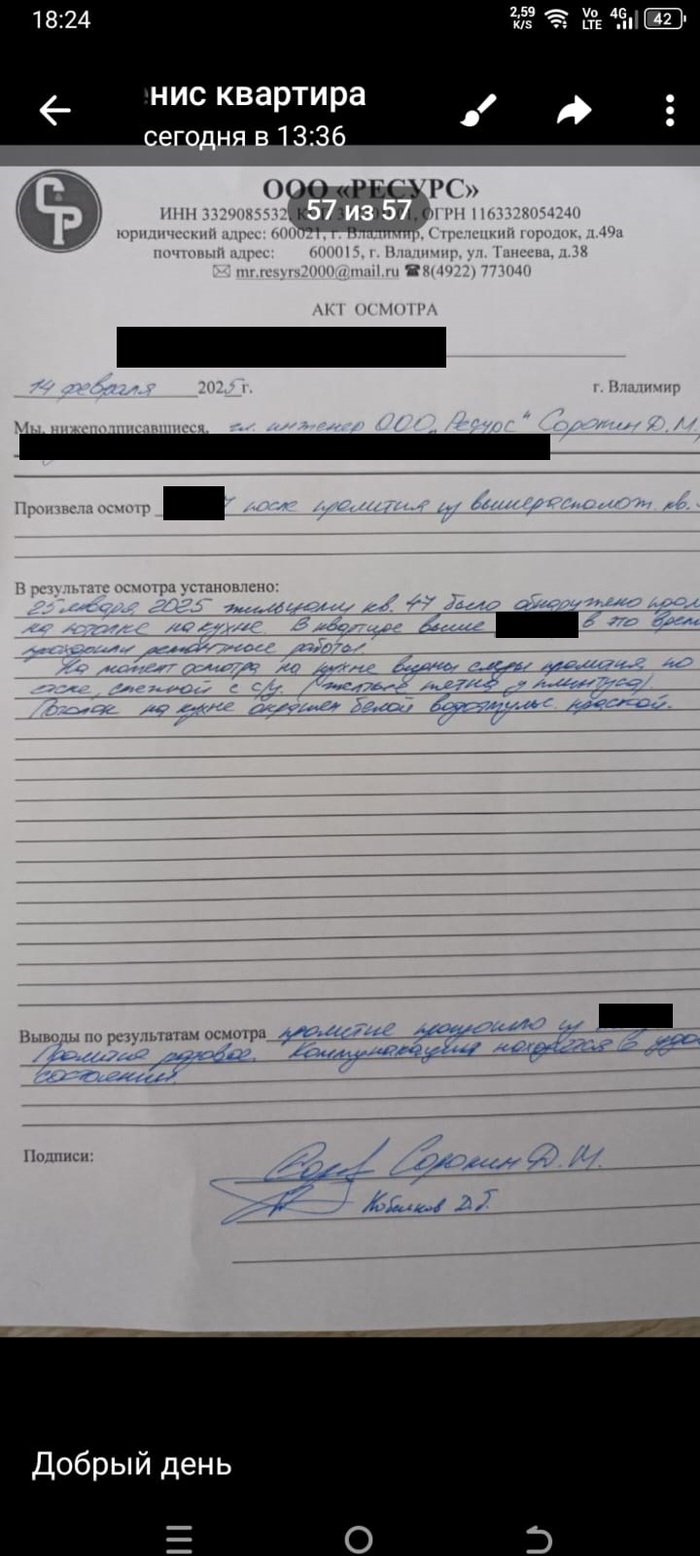 18:24
2,59 K/S Vo LTE 4G 42
нис квартира
сегодня в 13:36
ООО «РЕСУРС»
57 из 57
ИНН 3329085532, ОГРН 1163328054240
юридический адрес: 600021, г. Владимир, Стрелецкий городок, д.49а
почтовый адрес: 600015, г. Владимир, ул. Танеева, д.38
mr.resyrs2000@mail.ru 8(4922) 773040
АКТ ОСМОТРА
14 февраля 2025 г. г. Владимир
Мы, нижеподписавшиеся, гл. инженер ООО „Ресурс" Сорокин Д.М.
Произвела осмотр после пролития из вышерасполож. кв.
В результате осмотра установлено:
25 января 2025 жильцами кв. 47 было обнаружено
на потолке на кухне. В квартире выше в это
проходили ремонтные работы.
На момент осмотра на кухне видны следы пролития по
смежной с с/у. (желтые пятна у плинтуса).
Потолок на кухне окрашен белой водоэмульс. краской.
Выводы по результатам осмотра пролитие произошло из
разовое. Коммуникации находятся в
состоянии.
Подписи:
Сорокин Д.М.
Д.Г.
Добрый день